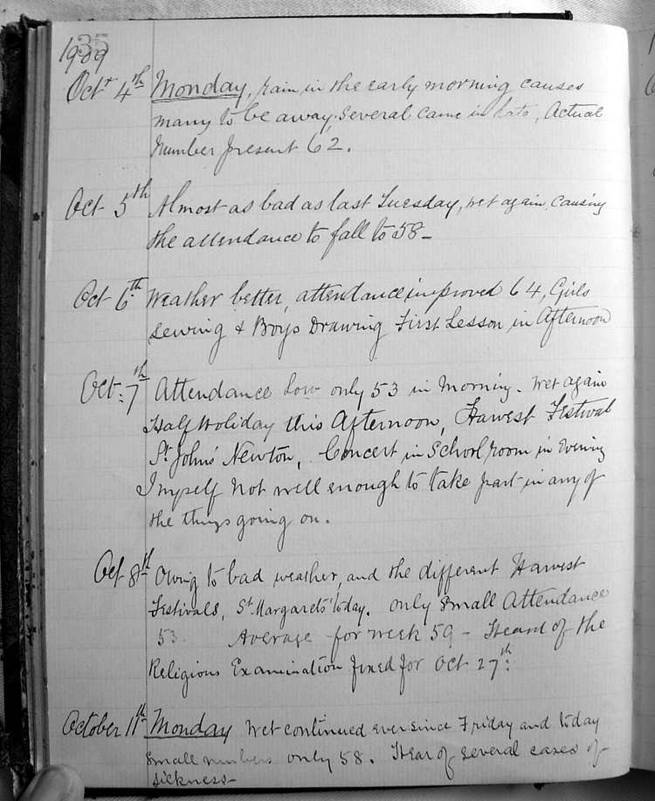 35
1909
Oct 4th Monday, rain in the early morning causes
many to be away. Several came in late, Actual
Number present 62.
Oct 5th Almost as bad as last Tuesday, wet again, causing
the attendance to fall to 58-
Oct 6th Weather better, attendance improved 64, Girls
Sewing & Boys Drawing First Lesson in Afternoon
Oct: 7th Attendance low only 53 in Morning. Wet again
Half Holiday this Afternoon, Harvest Festival
St Johns' Newton, Concert in School room in Evening
I myself not well enough to take part in any of
the things going on.
Oct 8th Owing to bad weather, and the different Harvest
Festivals, St Margarets today. only small Attendance
53. Average for week 59 - Heard of the
Religious Examination fixed for Oct 27th:
October 11th Monday Wet continued ever since Friday and today
small numbers only 58. Hear of several cases of
sickness-